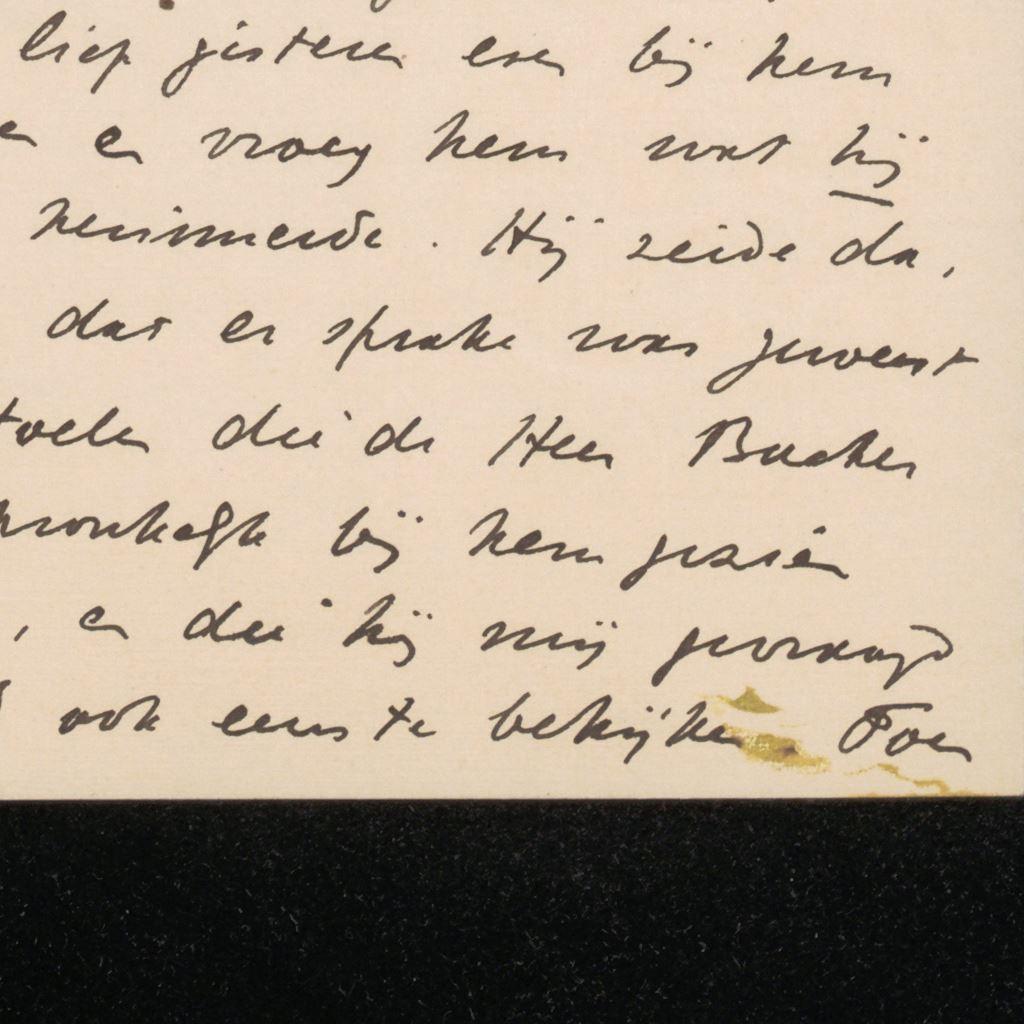 liep gisteren even bij hem
en en vroeg hem wat hij
herinnerde. Hij zeide da,
dat er sprake was geweest
toelen die de Heer
bij hem gezien
, en die hij mij gevraagd
ook eens te bekijken. Toen